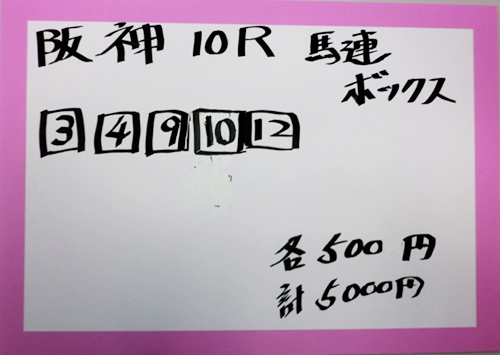 阪神 10R 馬連
ボックス
3 4 9 10 12
各500円
計5000円